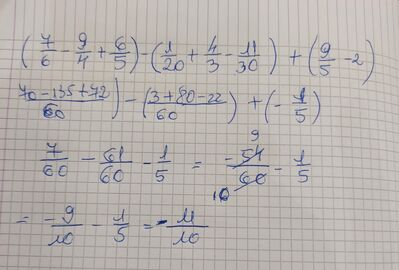 (7/6 - 9/4 + 6/5) - (1/20 + 4/3 - 11/30) + (9/5 - 2)
(70 - 135 + 72)/60) - (3 + 80 - 22)/60) + (- 1/5)
7/60 - 61/60 - 1/5 = -54/60 - 1/5
9
10
= -9/10 - 1/5 = -11/10